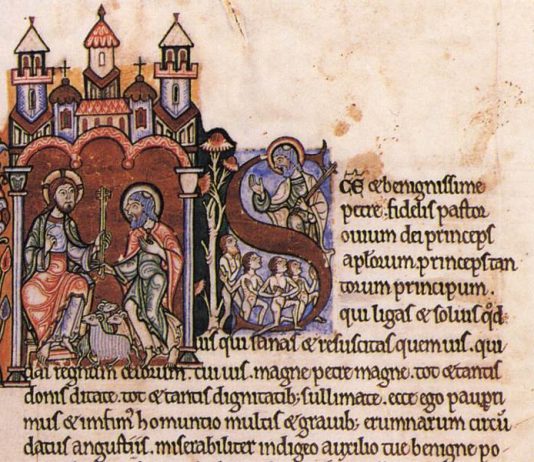 S
c̄s & benignissime
petre. fidelis pastor
ouium dei princeps
aplorum. princeps tan
torum principum.
qui ligas & soluis qd̄
uis qui sanas & resuscitas quem uis. qui
das regnum celorum. cui uis. magne petre magne. tot & tantis
donis ditate. tot & tantis dignitatib; sullimate. ecce ego paupri
mus & infim' homuntio multis & grauib; erumnarum circū
datus angustiis. miserabiliter indigeo auxilio tue benigne po